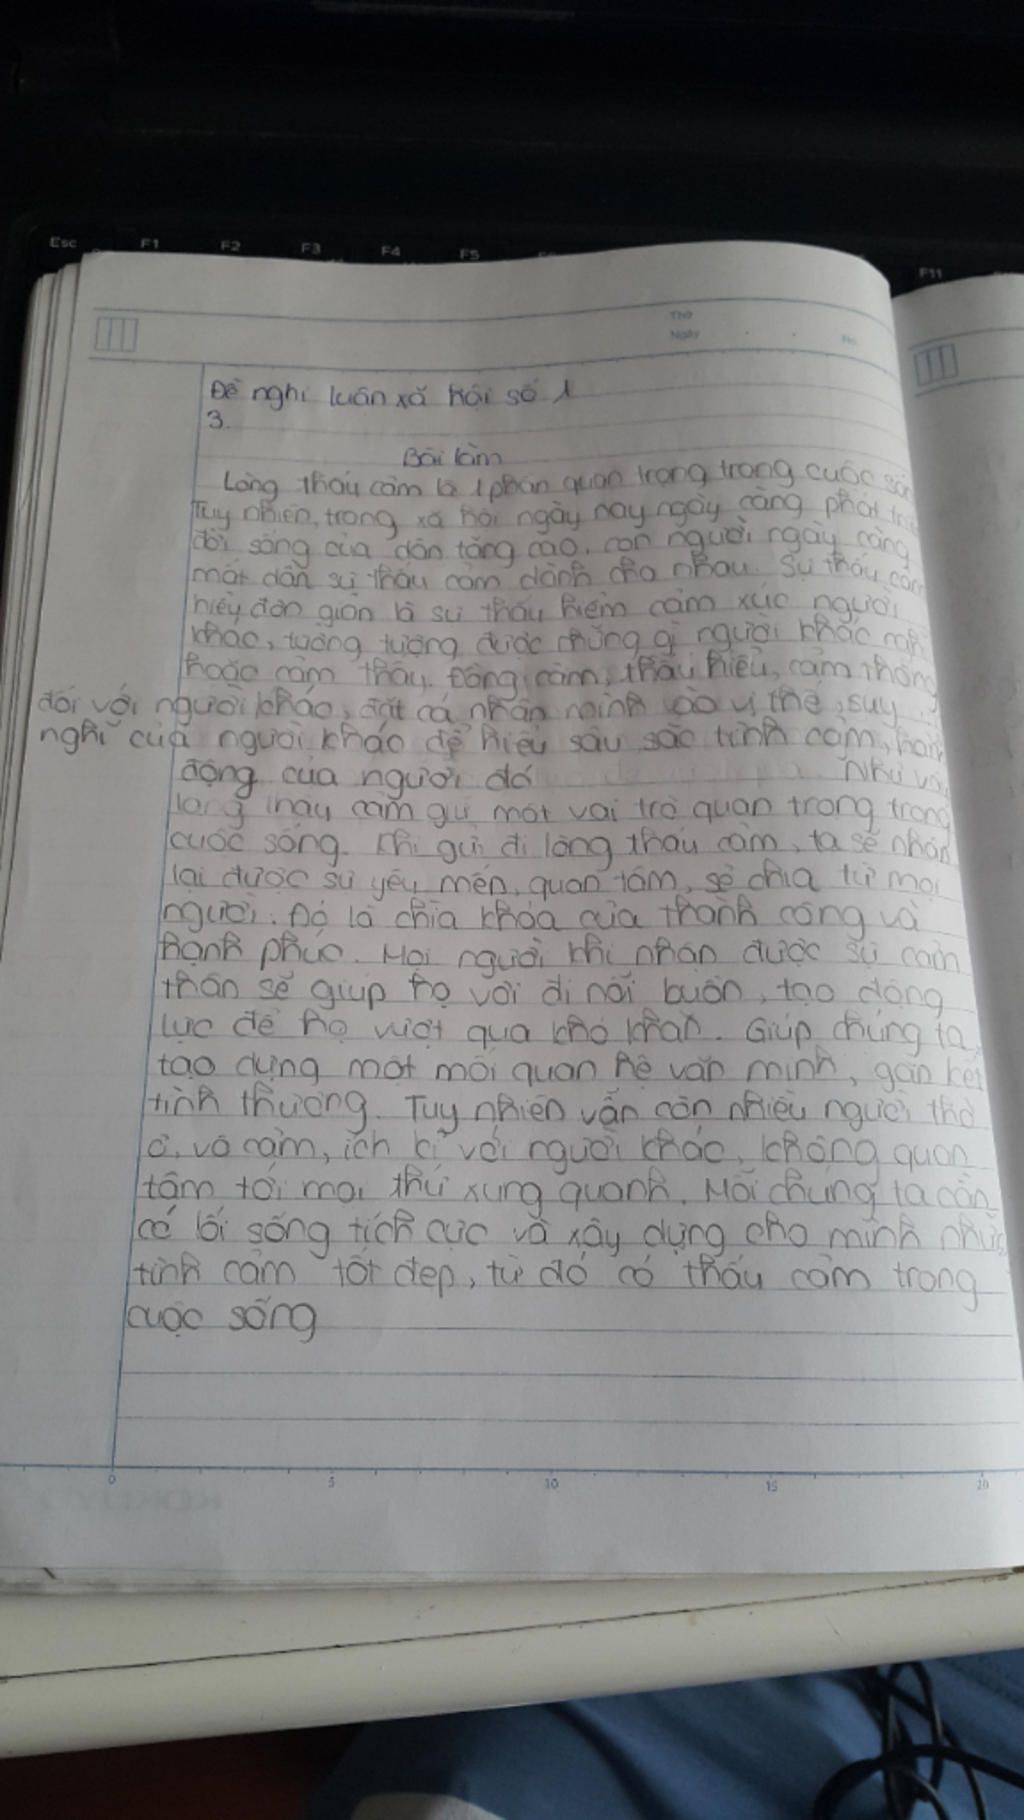 Esc F1 F2 F3 F4 F5 F11
Thứ
Ngày
No.
Đề nghị luận xã hội số 1
3.
Bài làm
Lòng thấu cảm là 1 phần quan trọng trong cuộc sốn
Tuy nhiên, trong xã hội ngày nay ngày càng phát
đời sống của dân tăng cao, con người ngày càng
mất dần sự thấu cảm dành cho nhau. Sự thấu cảm
hiểu đơn giản là sự thấu hiểm cảm xúc người
khác, tưởng tượng được những gì người khác
hoặc cảm thấy. Đồng cảm, thấu hiểu, cảm thông
đối với người khác, đặt cá nhân mình vào vị thế, suy
nghĩ của người khác để hiểu sâu sắc tình cảm, hành
động của người đó Như vậ
lòng thấu cảm giữ một vai trò quan trọng trong
cuộc sống. Khi gửi đi lòng thấu cảm, ta sẽ nhận
lại được sự yêu mến, quan tâm, sẻ chia từ mọi
người. Đó là chìa khóa của thành công và
hạnh phúc. Mọi người khi nhận được sự cảm
thân sẽ giúp họ vơi đi nỗi buồn, tạo động
lực để họ vượt qua khó khăn. Giúp chúng ta
tạo dựng một mối quan hệ văn minh, gắn kết
tình thương. Tuy nhiên vẫn còn nhiều người thờ
ơ, vô cảm, ích kỉ với người khác, không quan
tâm tới mọi thứ xung quanh. Mỗi chúng ta cần
có lối sống tích cực và xây dựng cho mình nhữn
tình cảm tốt đẹp, từ đó có thấu cảm trong
cuộc sống
0 5 10 15 20